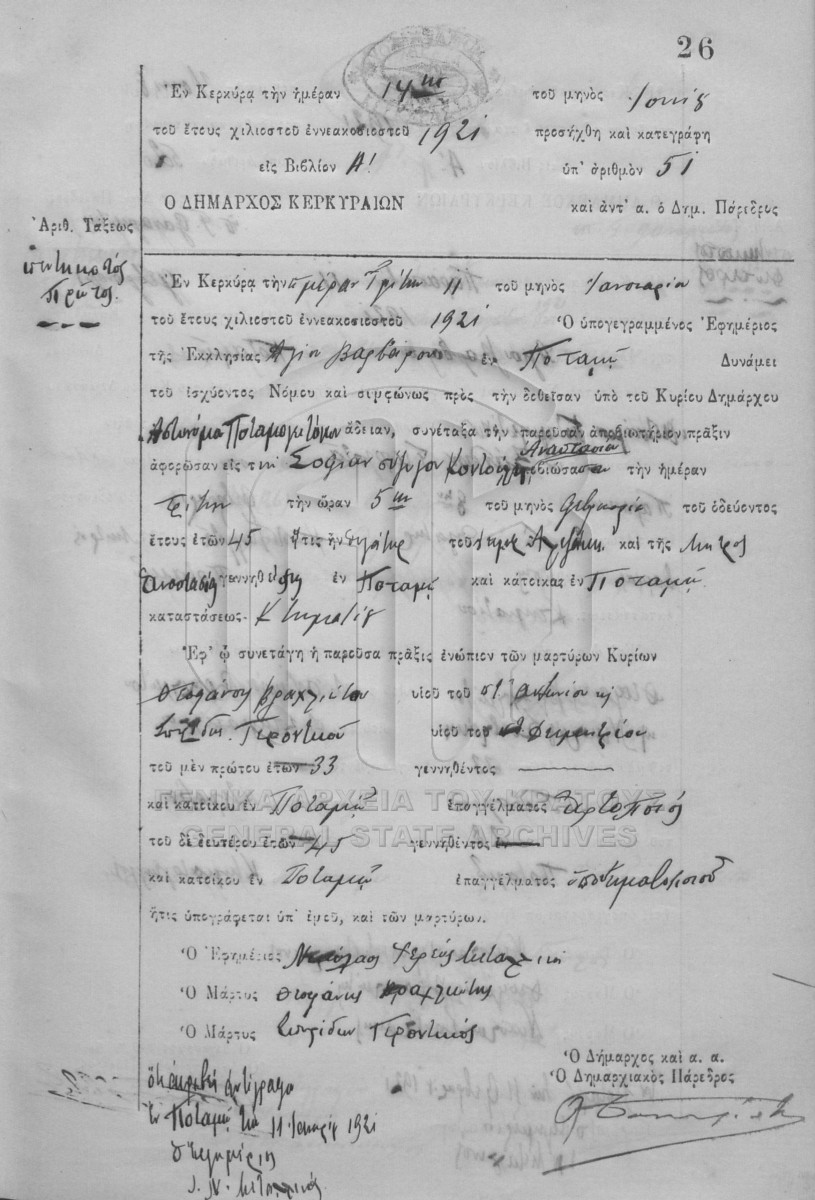 26
Ἐν Κερκύρᾳ τὴν ἡμέραν 14ην τοῦ μηνὸς
τοῦ ἔτους χιλιοστοῦ ἐννεακοσιοστοῦ 1921 προσήχθη καὶ κατεγράφη
εἰς Βιβλίον Α! ὑπ' ἀριθμὸν 51
Ο ΔΗΜΑΡΧΟΣ ΚΕΡΚΥΡΑΙΩΝ καὶ ἀντ' α. ὁ Δημ. Πάρεδρος
Ἀριθ. Τάξεως
πρῶτος.
Ἐν Κερκύρᾳ τὴν ἡμέραν Τρίτην 11 τοῦ μηνὸς Ἰανουαρίου
τοῦ ἔτους χιλιοστοῦ ἐννεακοσιοστοῦ 1921 Ὁ ὑπογεγραμμένος Ἐφημέριος
τῆς Ἐκκλησίας Ἁγίου Βαρβάρου ἐν Ποταμῷ Δυνάμει
τοῦ ἰσχύοντος Νόμου καὶ συμφώνως πρὸς τὴν δοθεῖσαν ὑπὸ τοῦ Κυρίου Δημάρχου
ἄδειαν, συνέταξα τὴν παροῦσαν ἀποβιωτήριον πρᾶξιν
ἀφορῶσαν εἰς τὴν Σοφίαν σύζυγον ἀποβιώσασαν τὴν ἡμέραν
Τρίτην τὴν ὥραν 5ην τοῦ μηνὸς τοῦ ὁδεύοντος
ἔτους ἐτῶν 45 ἥτις ἦν θυγάτηρ τοῦ καὶ τῆς μητρὸς
γεννηθεῖσα ἐν Ποταμῷ καὶ κάτοικος ἐν Ποταμῷ
καταστάσεως
Ἐφ' ᾧ συνετάγη ἡ παροῦσα πρᾶξις ἐνώπιον τῶν μαρτύρων Κυρίων
υἱοῦ τοῦ
υἱοῦ τοῦ Δημητρίου
τοῦ μὲν πρώτου ἐτῶν 33 γεννηθέντος
καὶ κατοίκου ἐν Ποταμῷ ἐπαγγέλματος ἀρτοποιός
ΓΕΝΙΚΑ ΑΡΧΕΙΑ ΤΟΥ ΚΡΑΤΟΥΣ
GENERAL STATE ARCHIVES
τοῦ δὲ δευτέρου ἐτῶν 45 γεννηθέντος ἐν
καὶ κατοίκου ἐν Ποταμῷ ἐπαγγέλματος ὑποδηματοποιοῦ
ἥτις ὑπογράφεται ὑπ' ἐμοῦ, καὶ τῶν μαρτύρων.
Ὁ Ἐφημέριος Νικόλαος Ἱερεύς
Ὁ Μάρτυς
Ὁ Μάρτυς Σπυρίδων
Ὁ Δήμαρχος καὶ α. α.
Ὁ Δημαρχιακὸς Πάρεδρος
ἀντίγραφο
Ποταμῷ τῇ 11 1921